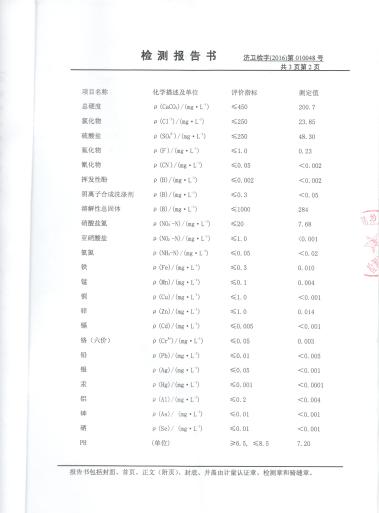 检测报告书 济卫检字(2016)第010048号
共3页第2页
项目名称 化学描述及单位 评价指标 测定值
总硬度 ρ(CaCO₃)/(mg·L⁻¹) ≤450 200.7
氯化物 ρ(Cl⁻)/(mg·L⁻¹) ≤250 23.85
硫酸盐 ρ(SO₄²⁻)/(mg·L⁻¹) ≤250 48.30
氟化物 ρ(F)/(mg·L⁻¹) ≤1.0 0.23
氰化物 ρ(CN)/(mg·L⁻¹) ≤0.05 <0.002
挥发性酚 ρ(B)/(mg·L⁻¹) ≤0.002 <0.002
阴离子合成洗涤剂 ρ(B)/(mg·L⁻¹) ≤0.3 <0.05
溶解性总固体 ρ(B)/(mg·L⁻¹) ≤1000 284
硝酸盐氮 ρ(NO₃⁻-N)/(mg·L⁻¹) ≤20 7.68
亚硝酸盐 ρ(NO₂⁻-N)/(mg·L⁻¹) ≤1.0 <0.001
氨氮 ρ(NH₃-N)/(mg·L⁻¹) ≤0.05 <0.02
铁 ρ(Fe)/(mg·L⁻¹) ≤0.3 0.010
锰 ρ(Mn)/(mg·L⁻¹) ≤0.1 0.004
铜 ρ(Cu)/(mg·L⁻¹) ≤1.0 <0.001
锌 ρ(Zn)/(mg·L⁻¹) ≤1.0 0.014
镉 ρ(Cd)/(mg·L⁻¹) ≤0.005 <0.001
铬（六价） ρ(Cr⁶⁺)/(mg·L⁻¹) ≤0.05 0.003
铅 ρ(Pb)/(mg·L⁻¹) ≤0.01 <0.005
银 ρ(Ag)/(mg·L⁻¹) ≤0.05 <0.001
汞 ρ(Hg)/(mg·L⁻¹) ≤0.001 <0.0001
铝 ρ(Al)/(mg·L⁻¹) ≤0.2 <0.004
砷 ρ(As)/ (mg·L⁻¹) ≤0.01 <0.001
硒 ρ(Se)/ (mg·L⁻¹) ≤0.01 <0.001
PH (单位) ≥6.5, ≤8.5 7.20
报告书包括封面、首页、正文（附页）、封底、并盖由计量认证章、检测章和骑缝章。